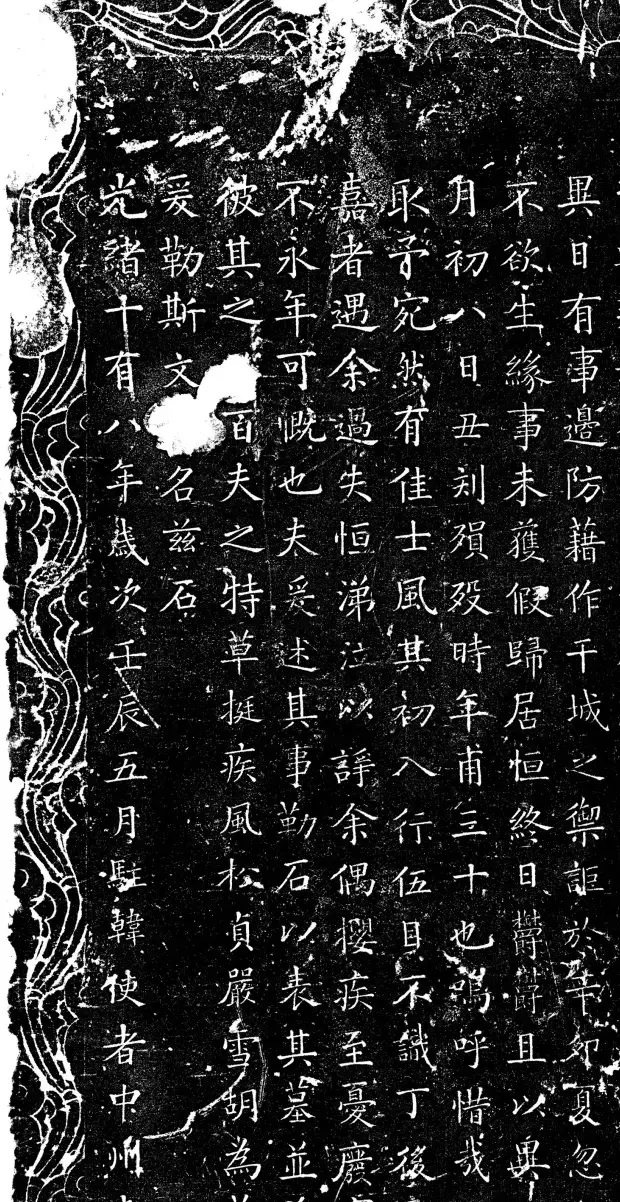 異日有事邊防藉作干城之禦詎於辛卯夏忽
不欲生緣事未獲假歸居恒終日欝欝且以異
月初八日丑刻殞歿時年甫三十也嗚呼惜哉
取予宛然有佳士風其初入行伍目不識丁後
嘉者遇余過失恒涕泣以諍余偶攖疾至憂廢
不永年可慨也夫爰述其事勒石以表其墓並
彼其之百夫之特草挺疾風松貞嚴雪胡為
爰勒斯文名茲石
光緒十有八年歲次壬辰五月駐韓使者中州